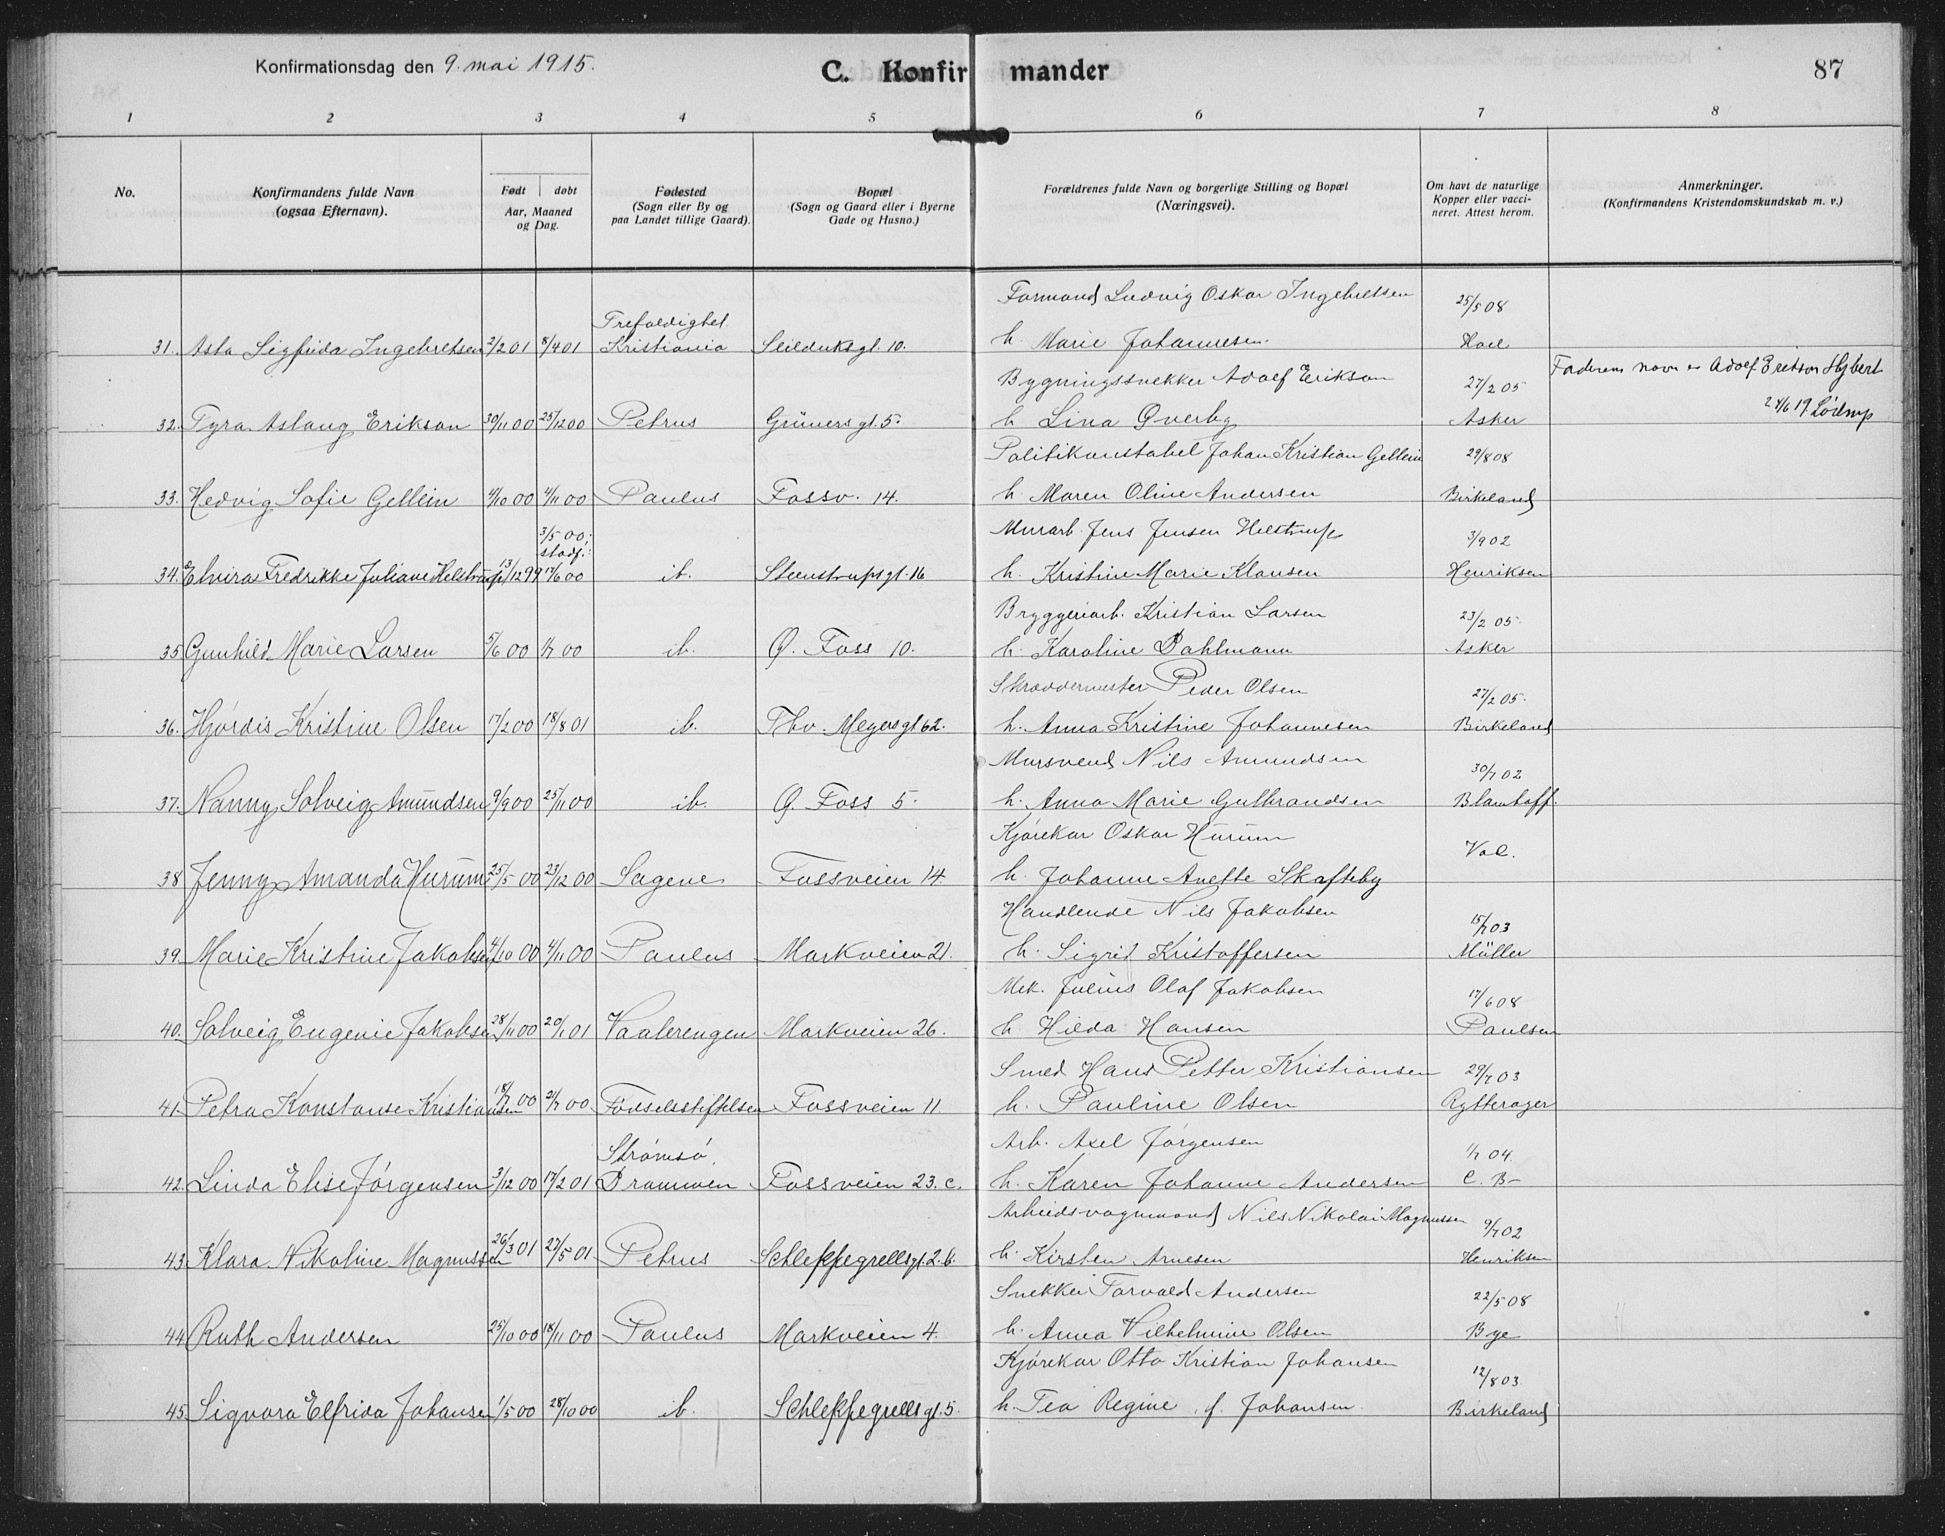 Konfirmationsdag den 9. mai 1915.
C. Konfirmander
87
1 2 3 4 5 6 7 8
No.
Konfirmandens fulde Navn
(ogsaa Efternavn).
Født døbt
Aar, Maaned
og Dag.
Fødested
(Sogn eller By og
paa Landet tillige Gaard).
Bopæl
(Sogn og Gaard eller i Byerne
Gade og Husno.)
Forældrenes fulde Navn og borgerlige Stilling og Bopæl
(Næringsvei).
Om havt de naturlige
Kopper eller vacci-
neret. Attest herom.
Anmerkninger.
(Konfirmandens Kristendomskundskab m. v.)
Formand Ludvig Oskar Ingebretsen 25/5 08
Trefoldighet
31. Asta Sigfrida Ingebretsen 2/2 01 8/4 01 Kristiania Seilduksgt. 10. h. Marie Johannesen. Hoel
Bygningssnekker Adolf Erikson 27/2 05 Faderens navn er Adolf Erikson Hybert
32. Tyra Aslaug Erikson 30/11 00 25/12 00 Petrus Grünersgt. 5. h. Lina Øverby Asker 24/6 19 Lødrup
Politikonstabel Johan Kristian Gellein 29/8 08
33. Hedvig Sofie Gellein 4/10 00 4/11 00 Paulus Fossv. 14. h. Maren Oline Andersen Birkeland
3/5 00; Murarb. Jens Jensen Helstrup 3/9 02
stadf.:
34. Elvira Fredrikke Juliane Helstrup 13/12 99 17/6 00 ib. Steenstrupsgt. 16 h. Kristine Marie Klausen Henriksen
Bryggeriarb. Kristian Larsen 23/2 05.
35 Gunhild Marie Larsen 5/6 00 1/7 00 ib. Ø. Foss 10. h. Karoline Dahlmann Asker
Skræddermester Peder Olsen 27/2 05.
36. Hjørdis Kristine Olsen 17/2 00 18/8 01 ib. Thv. Meyersgt 62. h. Anna Kristine Johannesen Birkeland
Mursvend Nils Amundsen 30/7 02
37. Nanny Solveig Amundsen 9/9 00 25/11 00 ib. Ø. Foss 5. h. Anna Marie Gulbrandsen Blomhoff.
Kjørekar Oskar Hurum
Vac.
38 Jenny Amanda Hurum 25/5 00 23/12 00 Sagene Fossveien 14. h. Johanne Anette Skofteby
Handlende Nils Jakobsen 15/7 03
39. Marie Kristine Jakobsen 4/10 00 4/11 00 Paulus Markveien 21. h. Sigrid Kristoffersen Müller
Mek. Julius Olaf Jakobsen 17/6 08
40. Solveig Eugenie Jakobsen 28/11 00 20/1 01 Vaalerengen Markveien 26. h. Hilda Hansen Paulsen
Smed Hans Petter Kristiansen 29/7 03
41. Petra Konstanse Kristiansen 18/7 00 21/7 00 Fødselsstiftelsen Fossveien 11. h. Pauline Olsen Rytterager
Strømsø. Arb. Axel Jørgensen 1/7 04
42. Linda Elise Jørgensen 3/12 00 17/2 01 Drammen Fossveien 23. c. h. Karen Johanne Andersen C. B-
Arbeidsvognmand Nils Nikolai Magnussen 9/7 02
43. Klara Nikoline Magnussen 26/3 01 27/5 01 Petrus Schleppegrellsgt. 2. b. h. Kirsten Arnesen Henriksen
Snekker Torvald Andersen 22/5 08
44. Ruth Andersen 25/10 00 18/11 00 Paulus Markveien 4. h. Anna Vilhelmine Olsen Bye
Kjørekar Otto Kristian Johansen 12/8 03
45. Sigvara Elfrida Johansen 1/5 00 28/10 00 ib. Schleppegrellsgt. 5. h. Tea Regine f. Johansen. Birkeland